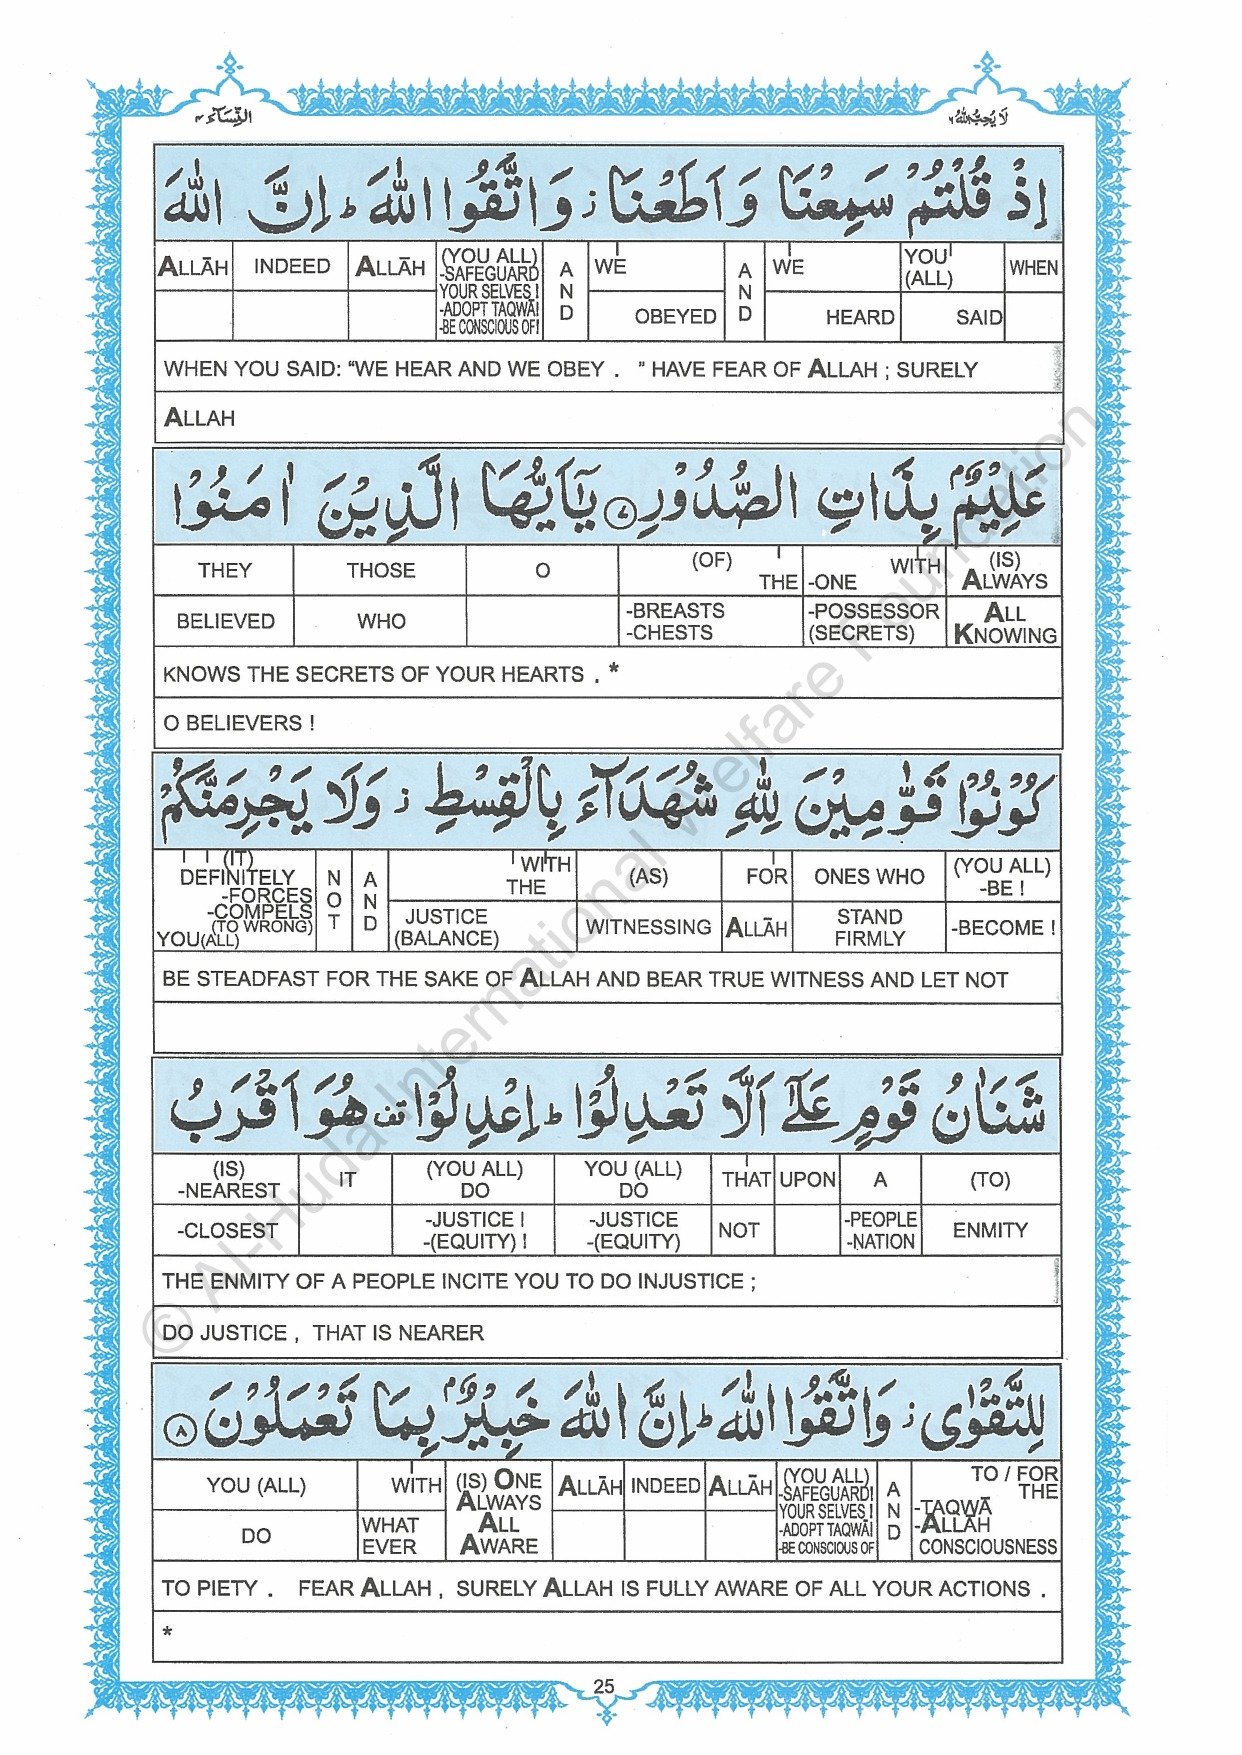 النِّسَآء ٤
لَا يُحِبُّ اللهُ ٦
اِذْ قُلْتُمْ سَمِعْنَا وَ اَطَعْنَا ز وَ اتَّقُوا اللّٰهَ ط اِنَّ اللّٰهَ
ALLĀH INDEED ALLĀH (YOU ALL) -SAFEGUARD YOUR SELVES ! -ADOPT TAQWĀ! -BE CONSCIOUS OF! AND WE AND WE YOU (ALL) WHEN
OBEYED HEARD SAID
WHEN YOU SAID: “WE HEAR AND WE OBEY . ” HAVE FEAR OF ALLAH ; SURELY
ALLAH
عَلِيْمٌۢ بِذَاتِ الصُّدُوْرِ ٧ يٰٓاَيُّهَا الَّذِيْنَ اٰمَنُوْا
THEY THOSE O (OF) THE WITH -ONE (IS) ALWAYS
BELIEVED WHO -BREASTS -CHESTS -POSSESSOR (SECRETS) ALL KNOWING
KNOWS THE SECRETS OF YOUR HEARTS . *
O BELIEVERS !
كُوْنُوْا قَوّٰمِيْنَ لِلّٰهِ شُهَدَآءَ بِالْقِسْطِ ز وَلَا يَجْرِمَنَّكُمْ
(IT) DEFINITELY -FORCES -COMPELS (TO WRONG) YOU(ALL) NOT AND WITH THE (AS) FOR ONES WHO (YOU ALL) -BE !
JUSTICE (BALANCE) WITNESSING ALLĀH STAND FIRMLY -BECOME !
BE STEADFAST FOR THE SAKE OF ALLAH AND BEAR TRUE WITNESS AND LET NOT
شَنَاٰنُ قَوْمٍ عَلٰٓى اَلَّا تَعْدِلُوْا ط اِعْدِلُوْا قف هُوَ اَقْرَبُ
(IS) -NEAREST IT (YOU ALL) DO YOU (ALL) DO THAT UPON A (TO)
-CLOSEST -JUSTICE ! -(EQUITY) ! -JUSTICE -(EQUITY) NOT -PEOPLE -NATION ENMITY
THE ENMITY OF A PEOPLE INCITE YOU TO DO INJUSTICE ;
DO JUSTICE , THAT IS NEARER
لِلتَّقْوٰى ز وَ اتَّقُوا اللّٰهَ ط اِنَّ اللّٰهَ خَبِيْرٌۢ بِمَا تَعْمَلُوْنَ ٨
YOU (ALL) WITH (IS) ONE ALWAYS ALLĀH INDEED ALLĀH (YOU ALL) -SAFEGUARD! YOUR SELVES ! -ADOPT TAQWĀ! -BE CONSCIOUS OF AND TO / FOR THE
DO WHAT EVER ALL AWARE -TAQWĀ -ALLĀH CONSCIOUSNESS
TO PIETY . FEAR ALLAH , SURELY ALLAH IS FULLY AWARE OF ALL YOUR ACTIONS .
*
25
© Al-Huda International Welfare Foundation